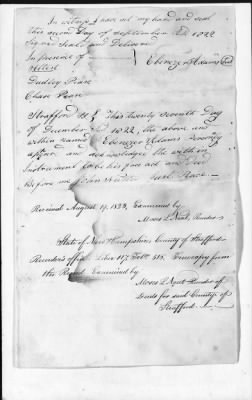 In witness I have set my hand and seal
this second Day of September AD 1822
Signed Seald and Deliverd
In presence of
Attest
Ebenezer Adams
Dudley Pease
Chase Pease
Strafford SS This twenty seventh Day
of December 1822, the above and
within named Ebenezer Adams
appear and acknowledged the within
Instrument to be his free act and Deed
Before me John Just. Peace
Received August 19. 1823. Examined by
Moses L. Neal, Recorder
State of New Hampshire, County of Strafford
Recorder's office Liber 117. Folio 515. True copy from
the Record Examined by
Moses L. Neal Recorder of
deeds for said County of
Strafford.